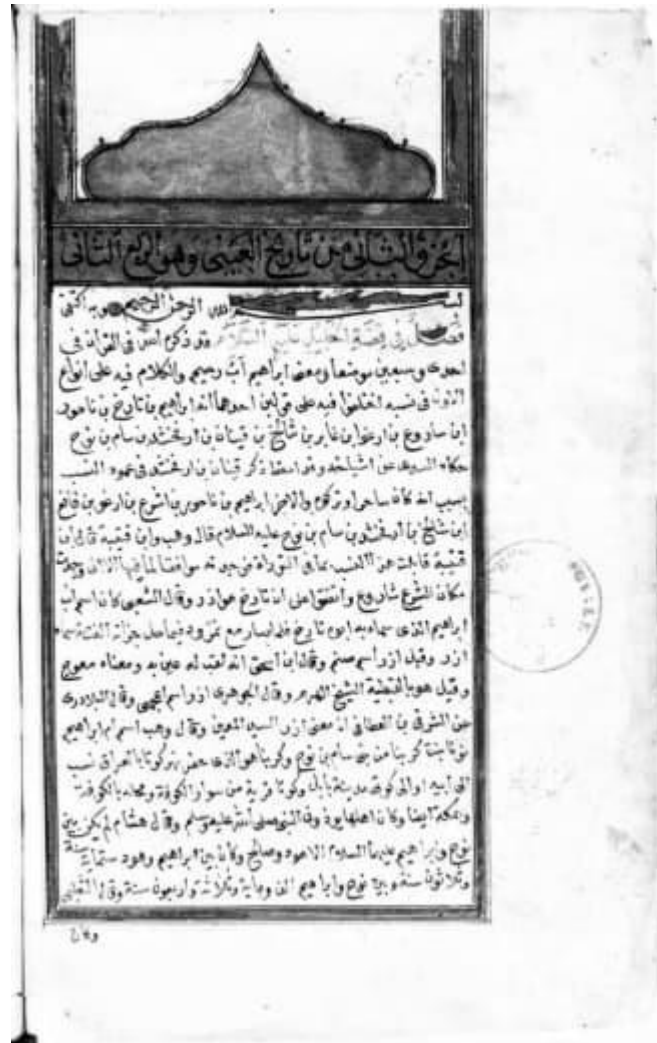 الجزء الثاني من تاريخ العيني وهو الربع الثاني
بسم الله الرحمن الرحيم وبه اكتفي
فصل في قصة الخليل عليه السلام وقد ذكره الله في القرآن في
احدى وسبعين موضعا ومعنى ابراهيم اب رحيم والكلام فيه على انواع
الاول في نسبه اختلفوا فيه على قولين احدهما انه ابراهيم بن تارخ بن ناحور
ابن ساروع بن ارغوا بن غابر بن شالخ بن قينان بن ارفخشد بن سام بن نوح
حكاه السدي عن اشياخه وقد اسقط ذكر قينان بن ارفخشد في عمود النسب
بسبب انه كان ساحرا وتركوه والاخر ابراهيم بن ناحور بن اشرع بن ارغو بن فالخ
ابن شالخ بن ارفخشد بن سام بن نوح عليه السلام قاله وهب وابن قتيبة قال ابن
قتيبة قابلت هذا النسب بما في التوراة فوجدته موافقا لما فيها الا اني وجدت
مكان اشرع شاروع واتفقوا على ان تارخ هو ازر وقال الشعبي كان اسم اب
ابراهيم الذي سماه به ابوه تارخ فلما صار مع نمرود قيما على خزانة الهته سماه
ازر وقيل ازر اسم صنم وقال ابن اسحق انه لقب له عيب به ومعناه معوج
وقيل هو بالقبطية الشيخ الهرم وقال الجوهري ازر اسم اعجمي وقال البلاذري
عن الشرقي بن القطامي ان معنى ازر السيد المعين وقال وهب اسم ام ابراهيم
نونا بنت كربنا من بني سام بن نوح وكربنا هو الذي حفر نهر كوثا بالعراق نسب
الى ابيه او الى كوثى مدينة بابل وكوثا قرية من سواد الكوفة ومحلة بالكوفة
وبمكة ايضا وكان اهلها يوذون النبي صلى الله عليه وسلم وقال هشام لم يكن بين
نوح وابراهيم عليهما السلام الا هود وصالح وكان بين ابراهيم وهود ستماية سنة
وثلاثون سنة وبين نوح وابراهيم الف وماية وثلاثة واربعون سنة وقال الثعلبي
وكان